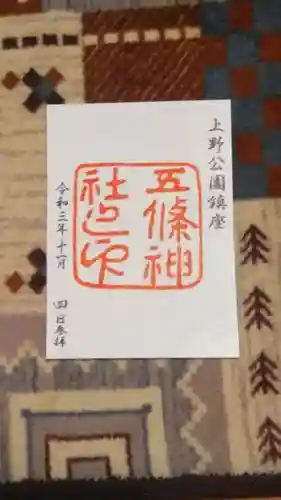 上野公園鎮座
五條神
社之印
令和三年十一月 四日参拝